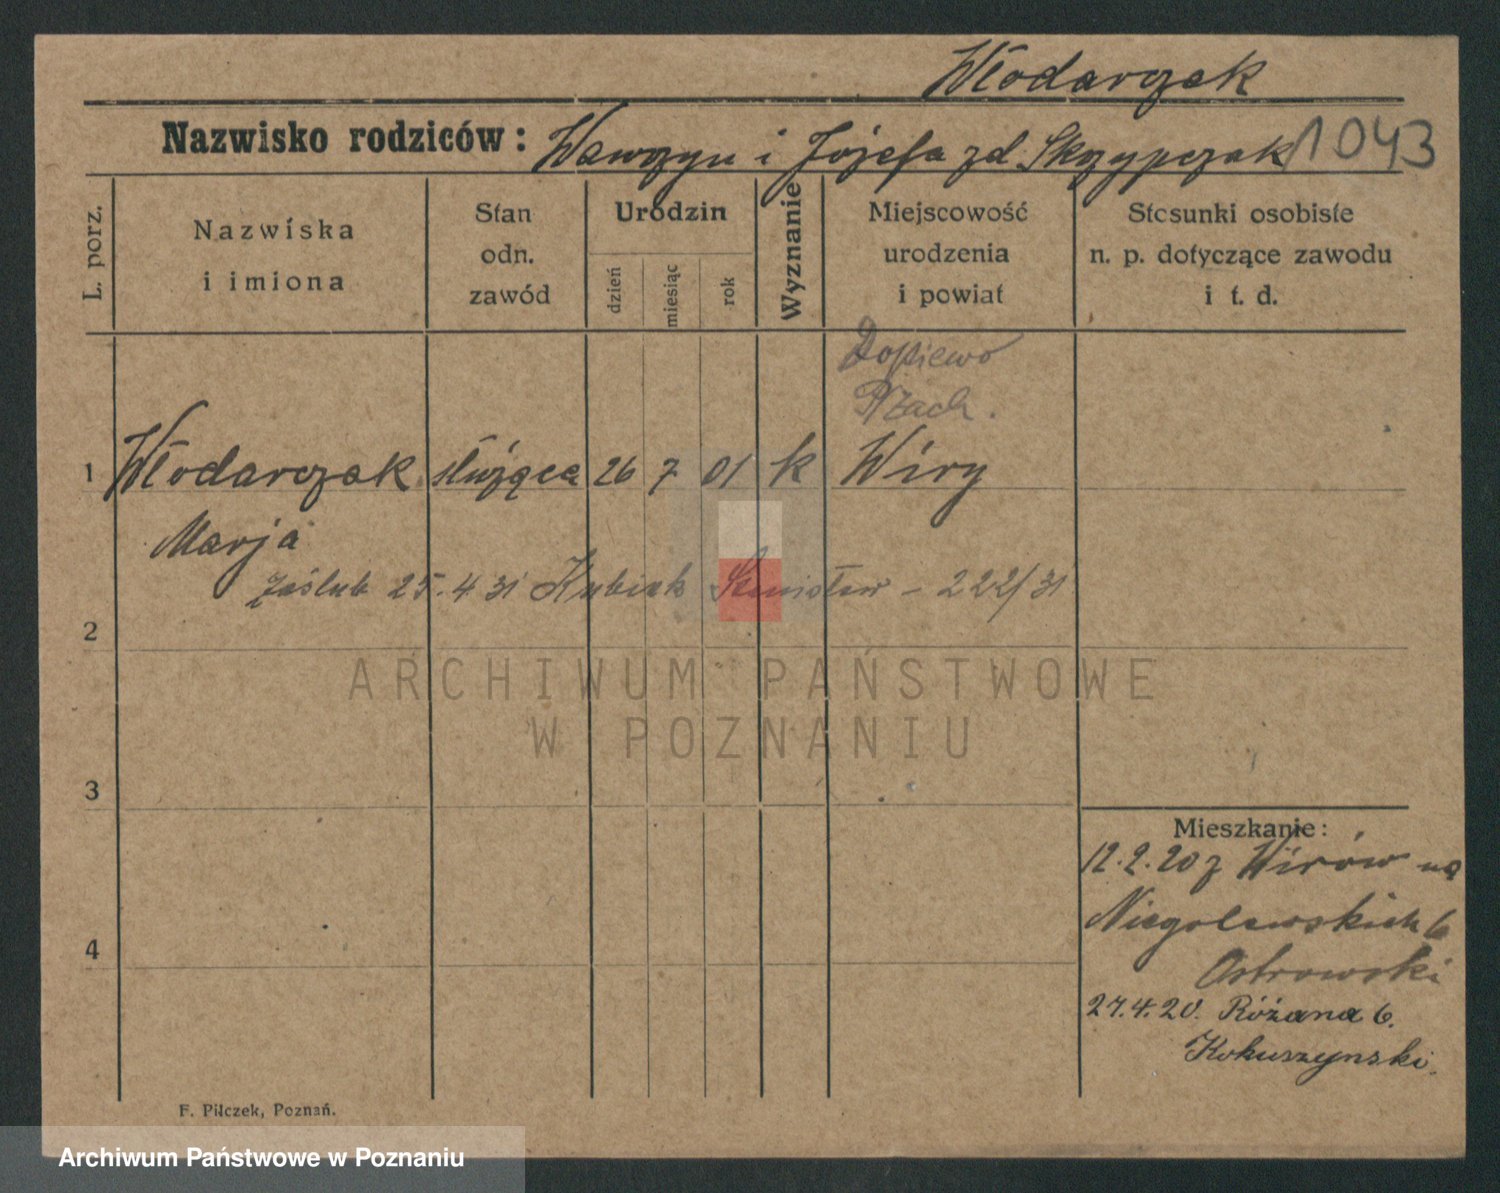 Włodarczak
Nazwisko rodziców: Wawrzyn i Józefa zd. Skrzypczak 1043
L. porz.
Nazwiska i imiona
Stan odn. zawód
Urodzin
dzień
miesiąc
rok
Wyznanie
Miejscowość urodzenia i powiat
Stosunki osobiste n. p. dotyczące zawodu i t. d.
Dopiewo
P/Zach.
1 Włodarczak służąca 26 7 01 k Wiry
Marja
Zaślub 25.4 31 Kubiak Stanisław – 222/31
2
ARCHIWUM PAŃSTWOWE
W POZNANIU
3
Mieszkanie:
12.2.20 z Wirów na
Niegolewskich 6
4
Ostrowski
27.4.20. Różana 6.
Kokuszynski.
F. Pilczek, Poznań.
Archiwum Państwowe w Poznaniu